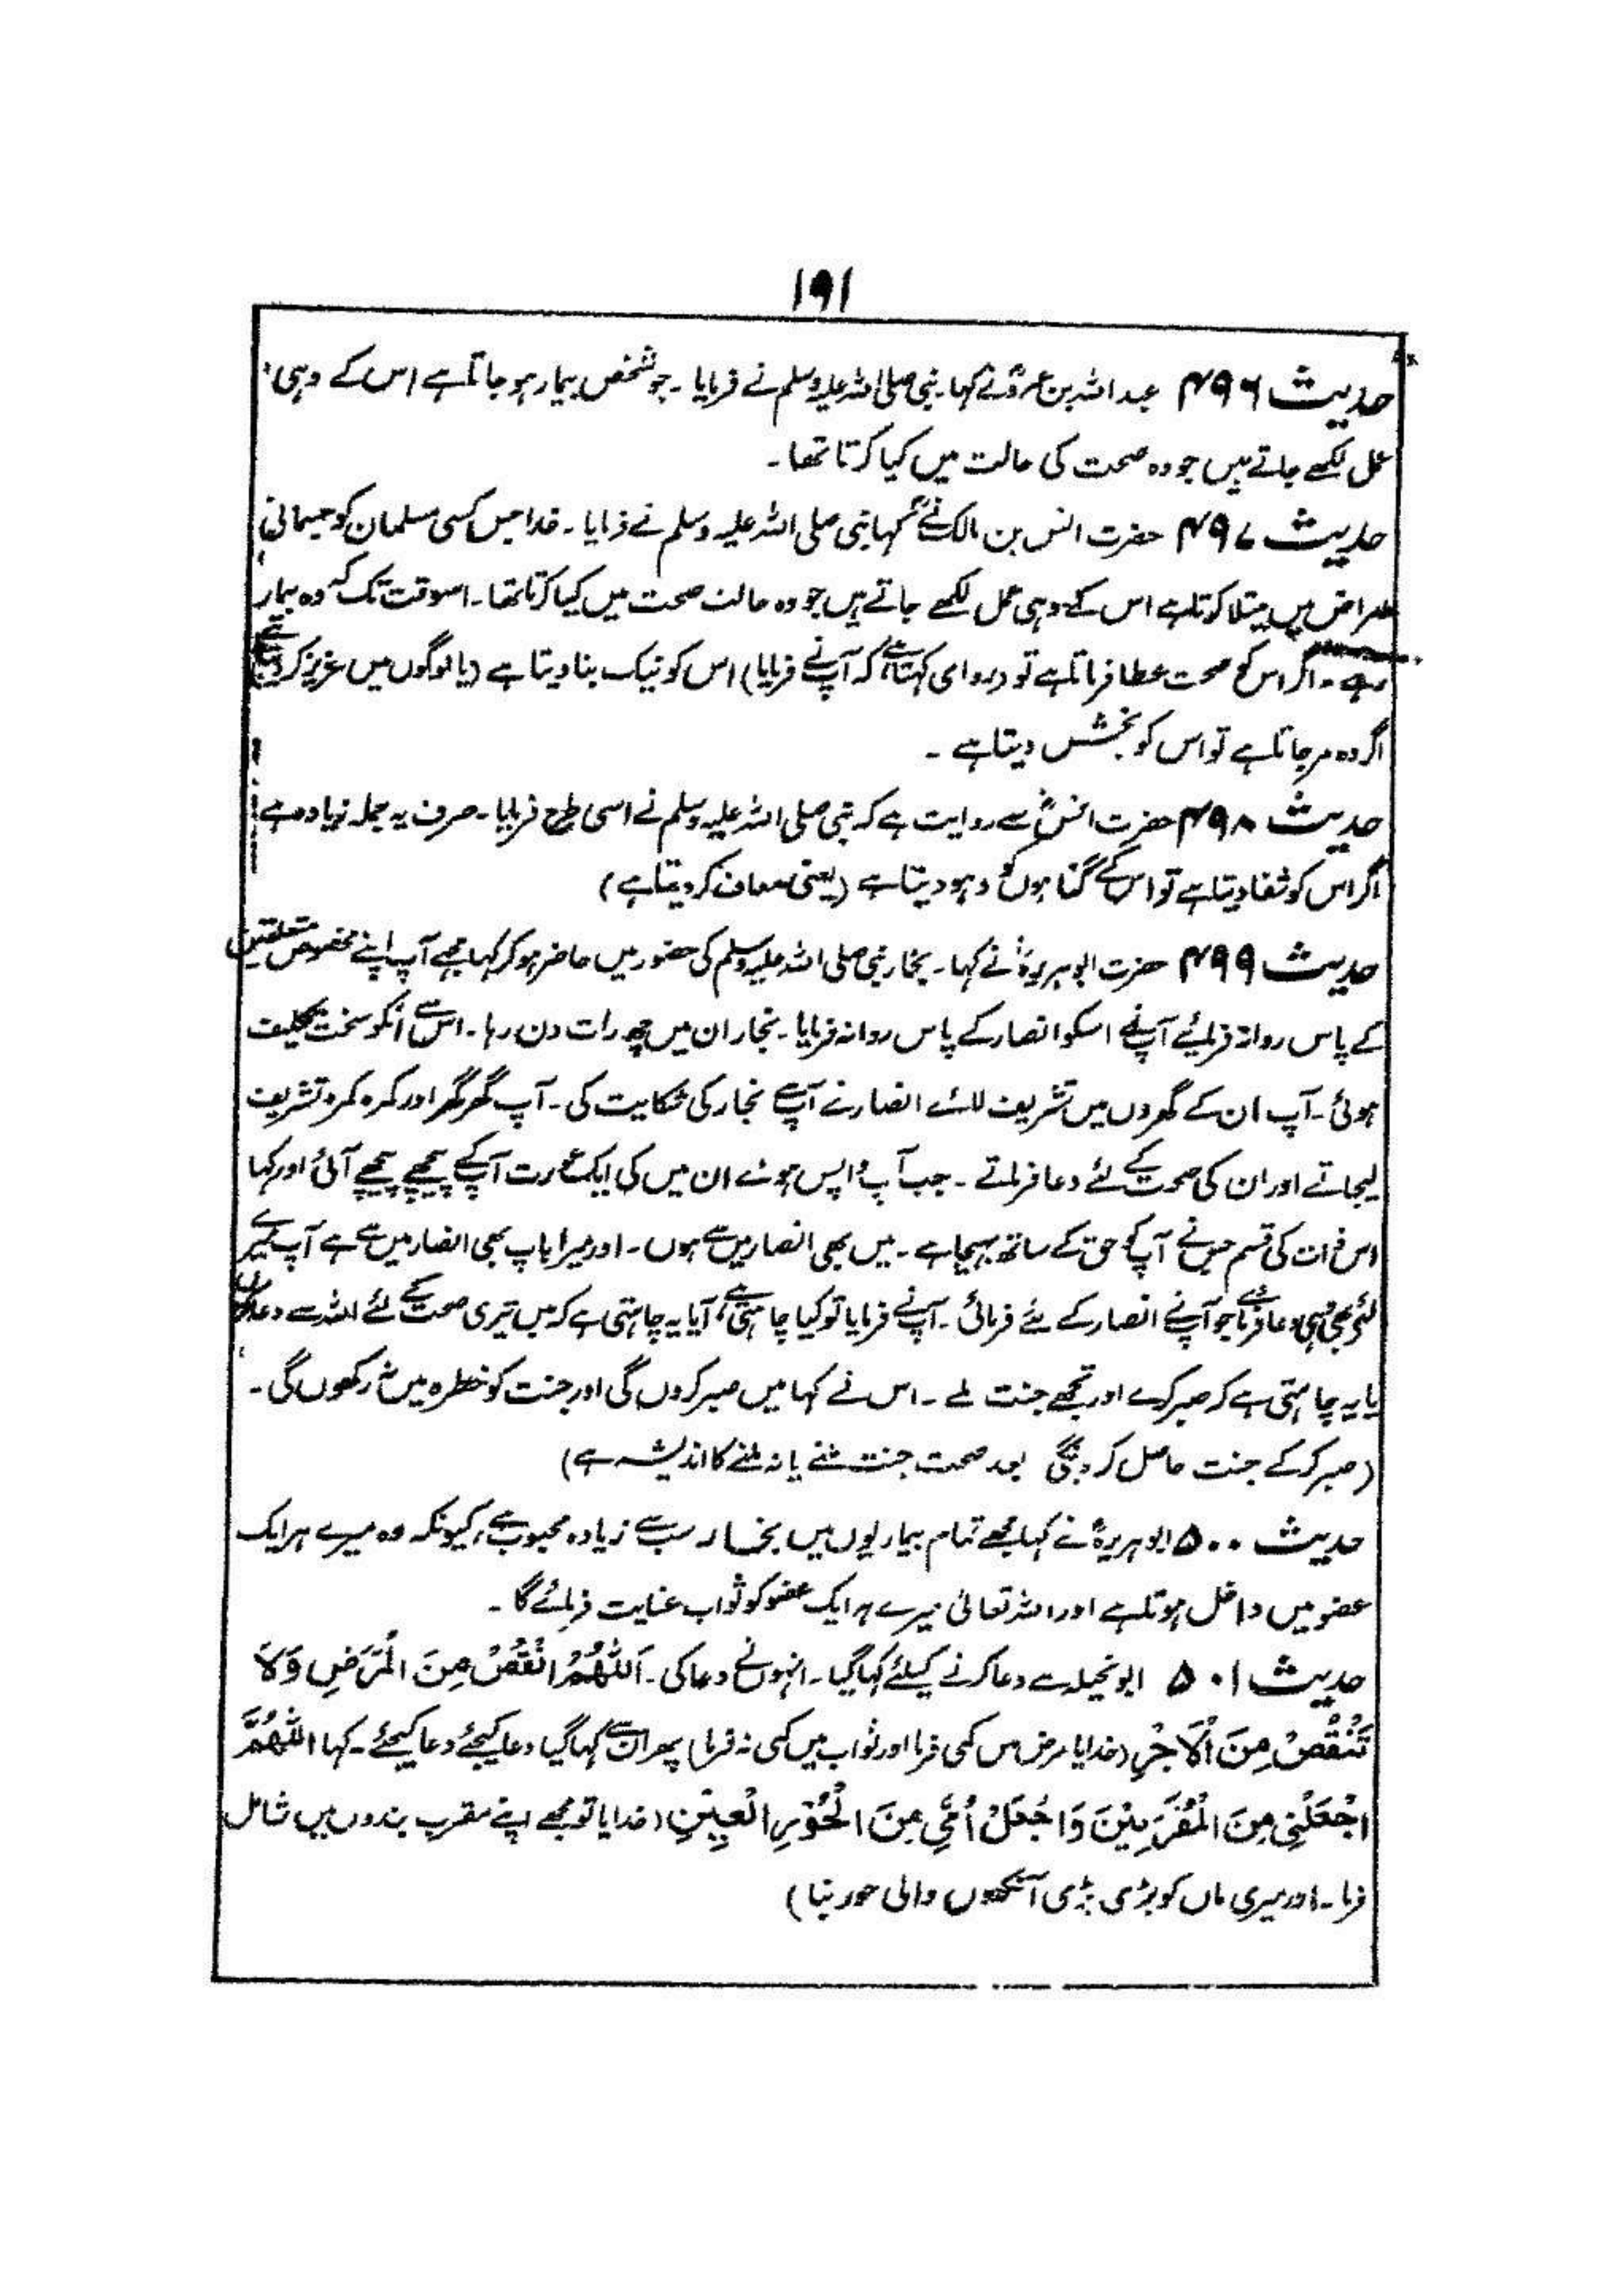 ۱۹۱
حدیث ۴۹۶ عبد اللہ بن عمروؓ نے کہا۔ نبی صلی اللہ علیہ وسلم نے فرمایا۔ جو شخص بیمار ہو جاتا ہے اس کے وہی
عمل لکھے جاتے ہیں جو وہ صحت کی حالت میں کیا کرتا تھا۔
حدیث ۴۹۷ حضرت انس بن مالکؓ نے کہا نبی صلی اللہ علیہ وسلم نے فرمایا۔ خدا جس کسی مسلمان کو جسمانی
امراض میں مبتلا کرتا ہے اس کے وہی عمل لکھے جاتے ہیں جو وہ حالت صحت میں کیا کرتا تھا۔ اسوقت تک کہ وہ بیمار
رہے۔ اگر اس کو صحت عطا فرماتا ہے تو (راوی کہتا ہے کہ آپ نے فرمایا) اس کو نیک بنا دیتا ہے (یا لوگوں میں عزیز کر دیتا ہے)
اگر وہ مر جاتا ہے تو اس کو بخش دیتا ہے ۔
حدیث ۴۹۸ حضرت انسؓ سے روایت ہے کہ نبی صلی اللہ علیہ وسلم نے اسی طرح فرمایا۔ صرف یہ جملہ زیادہ ہے
اگر اس کو شفا دیتا ہے تو اس کے گناہوں کو دہو دیتا ہے (یعنی معاف کر دیتا ہے)
حدیث ۴۹۹ حضرت ابوہریرہؓ نے کہا۔ بخار نبی صلی اللہ علیہ وسلم کی حضور میں حاضر ہو کر کہا مجھے آپ اپنے مخصوص متعلقین
کے پاس روانہ فرمائیے آپ نے اسکو انصار کے پاس روانہ فرمایا۔ بخار ان میں چھ رات دن رہا۔ اس سے انکو سخت تکلیف
ہوئی۔ آپ ان کے گھروں میں تشریف لائے انصار نے آپ سے بخار کی شکایت کی۔ آپ گھر گھر اور کمرہ کمرہ تشریف
لیجاتے اور ان کی صحت کے لئے دعا فرماتے ۔ جب آپ واپس ہوئے ان میں کی ایک عورت آپ کے پیچھے پیچھے آئی اور کہا
اس ذات کی قسم جس نے آپ کو حق کے ساتھ بہیجا ہے ۔ میں بھی انصار میں سے ہوں۔ اور میرا باپ بھی انصار میں سے ہے آپ میرے
لئے بھی وہی دعا فرمائیے جو آپ نے انصار کے لئے فرمائی ۔ آپ نے فرمایا تو کیا چاہتی ہے، آیا یہ چاہتی ہے کہ میں تیری صحت کے لئے اللہ سے دعا کروں
یا یہ چاہتی ہے کہ صبر کرے اور تجھے جنت ملے ۔ اس نے کہا میں صبر کروں گی اور جنت کو خطرہ میں نہ رکھوں گی ۔
(صبر کر کے جنت حاصل کر ونگی بعد صحت جنت ملنے یا نہ ملنے کا اندیشہ ہے)
حدیث ۵۰۰ ابوہریرہؓ نے کہا مجھے تمام بیماریوں میں بخار سب سے زیادہ محبوب ہے، کیونکہ وہ میرے ہر ایک
عضو میں داخل ہوتا ہے اور اللہ تعالیٰ میرے ہر ایک عضو کو ثواب عنایت فرمائے گا ۔
حدیث ۵۰۱ ابونحیلہ سے دعا کرنے کیلئے کہا گیا ۔ انہوں نے دعا کی ۔ اَللّٰهُمَّ انْقُصْ مِنَ الْمَرَضِ وَلَا
تَنْقُصْ مِنَ الْاَجْرِ (خدایا مرض میں کمی فرما اور ثواب میں کمی نہ فرما) پھر ان سے کہا گیا دعا کیجئے دعا کیجئے ۔ کہا اللّٰهُمَّ
اجْعَلْنِي مِنَ الْمُقَرَّبِيْنَ وَاجْعَلْ اُمِّي مِنَ الْحُوْرِ الْعِيْنِ (خدایا تو مجھے اپنے مقرب بندوں میں شامل
فرما ۔ اور میری ماں کو بڑی بڑی آنکھوں والی حور بنا)